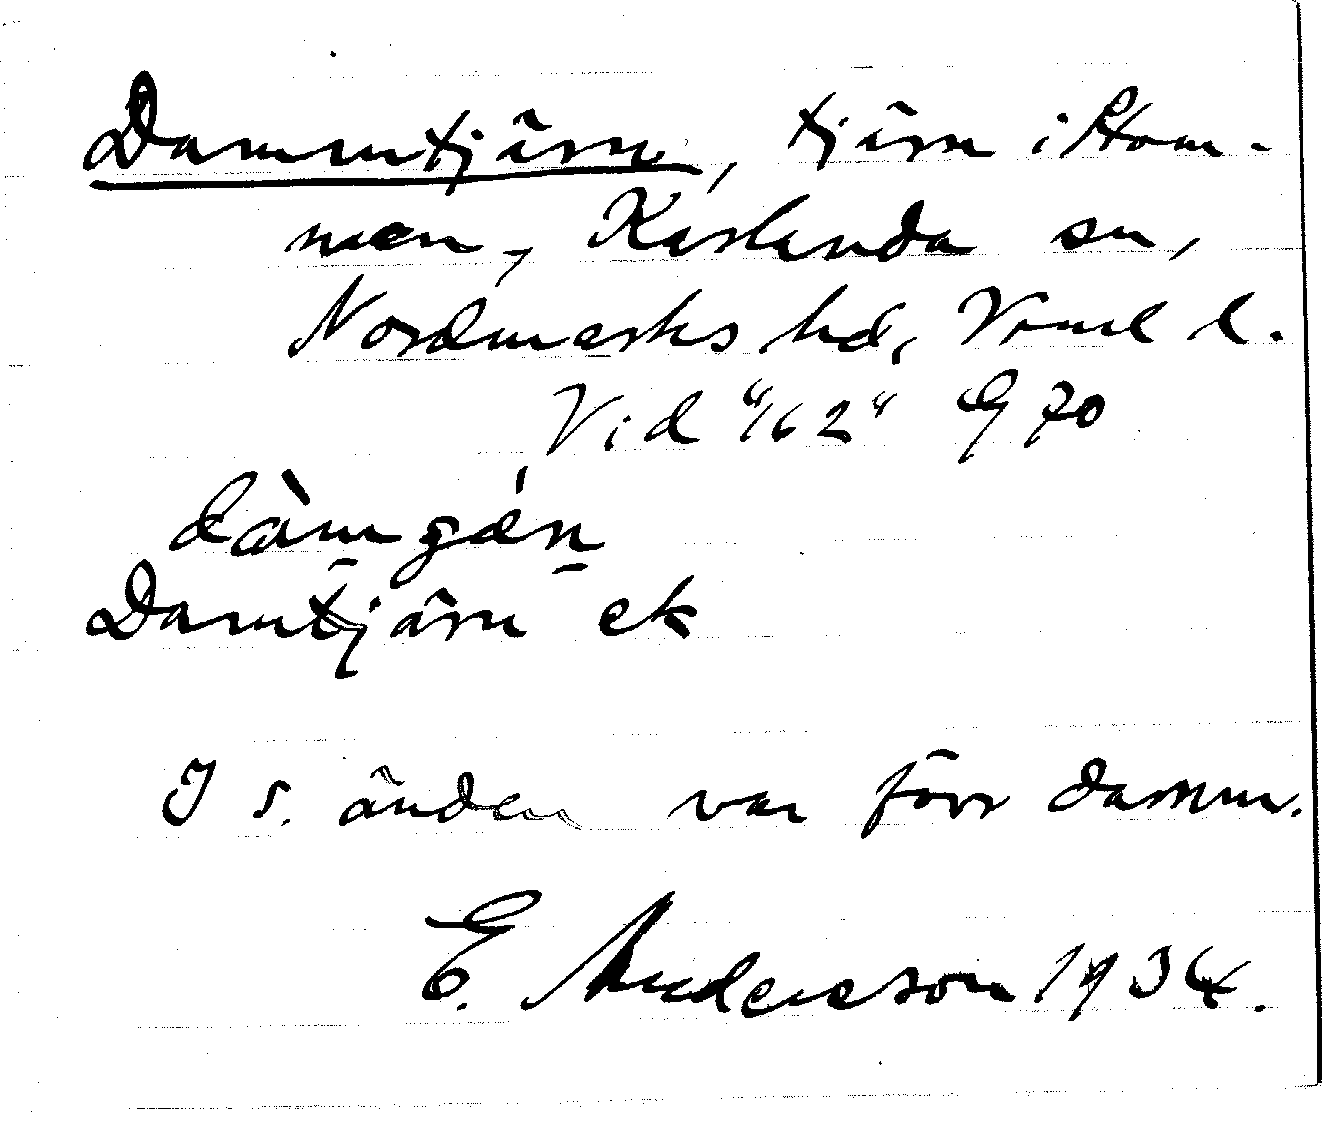 Dammtjärn, tjärn i Stom-
men, Karlanda sn,
Nordmarks hd, Vrml l.
Vid "162" G 70
dàmgǽn
Damtjärn ek
I s. änden var förr damm.
E. Anderson 1934.